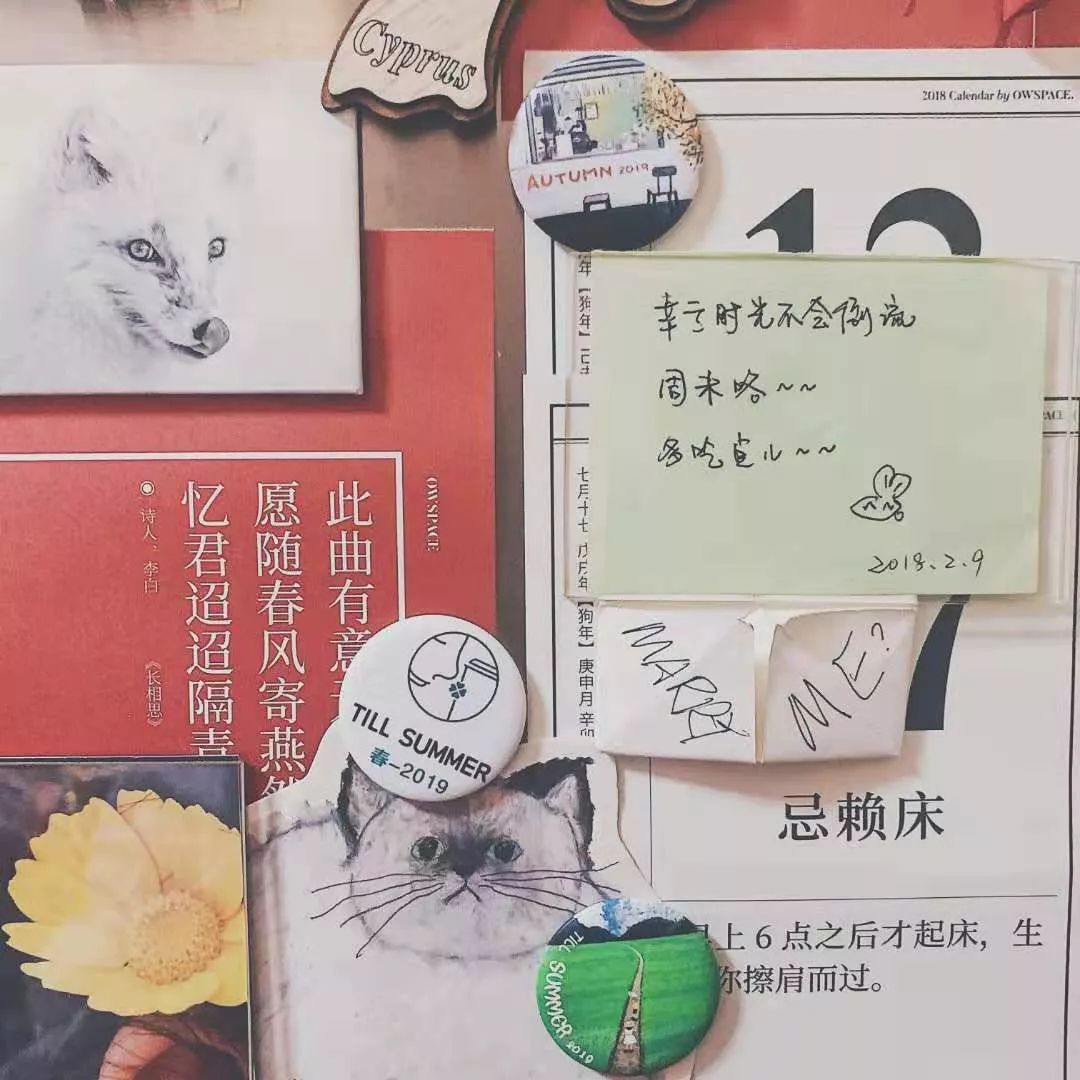 Cyprus
2018 Calendar by OWSPACE.
AUTUMN 2019
年【狗年】
幸亏时光不会倒流
周末咯~~
多吃点儿~~
2018.2.9
七月十七 戊戌年【狗年】庚申月 辛卯
MARRY
ME?
7
忌赖床
早上 6 点之后才起床，生
你擦肩而过。
OWSPACE
此曲有意
愿随春风寄燕然
忆君迢迢隔青
诗人，李白
《长相思》
TILL SUMMER
春-2019
TILL SUMMER 2019